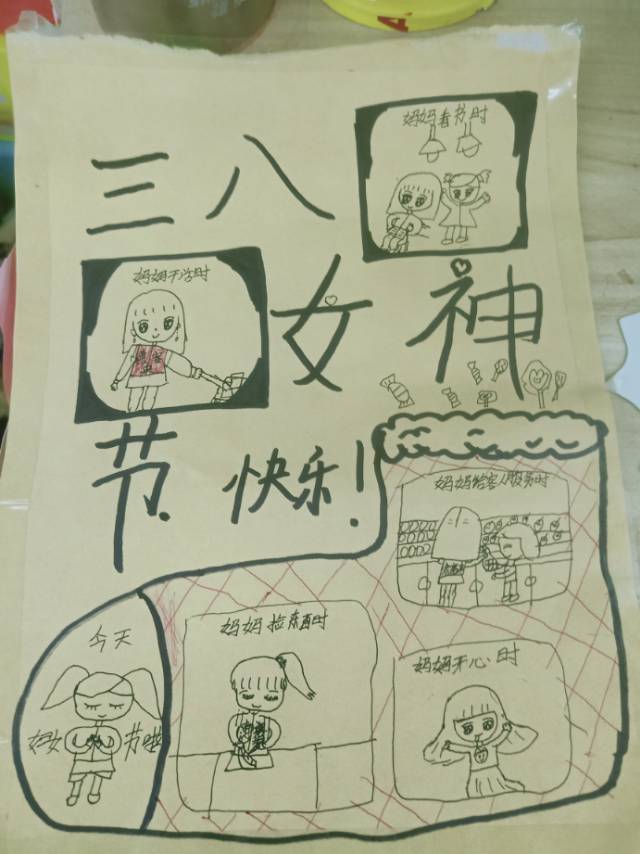 三八
妈妈看书时
妈妈干活时
女神
节.快乐!
妈妈给客人服务时
妈妈捡东西时
妈妈开心时
今天
妇女节啦